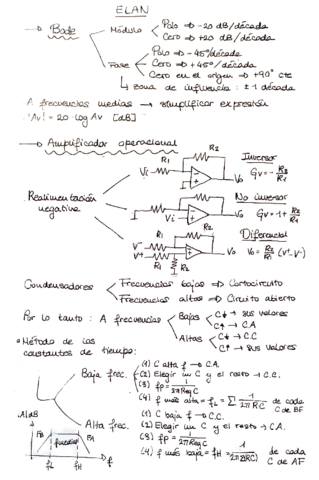 ELAN
→ Bode
Módulo
Polo ⇒ -20 dB/década
Cero ⇒ +20 dB/década
Fase
Polo ⇒ -45°/década
Cero ⇒ +45°/década
Cero en el origen ⇒ +90° cte
↳ zona de influencia: ±1 década
A frecuencias medias → simplificar expresión
|Av| = 20·log Av [dB]
→ Amplificador operacional
Realimentación negativa
R1 R2 Vi Vo
Inversor
Gv = -R2/R1
R1 R2 Vi Vo
No inversor
Gv = 1 + R2/R1
R1 R2 V- V+ R1 R2 Vo
Diferencial
Vo = R2/R1 (V+ - V-)
Condensadores
Frecuencias bajas ⇒ Cortocircuito
Frecuencias altas ⇒ Circuito abierto
Por lo tanto: A frecuencias
Bajas
C↓ → sus valores
C↑ → C.A
Altas
C↓ → C.C
C↑ → sus valores
Método de las constantes de tiempo:
Baja frec.
(1) C alta f → C.A.
(2) Elegir un C y el resto → C.C.
(3) fp = 1/2πReqC
(4) f más alta = fL = Σ 1/2πRC de cada C de BF
Alta frec.
(1) C baja f → C.C.
(2) Elegir un C y el resto → C.A.
(3) fp = 1/2πReqC
(4) f más baja = fH = 1/2πΣ(RC) de cada C de AF
A|dB
fL fH f